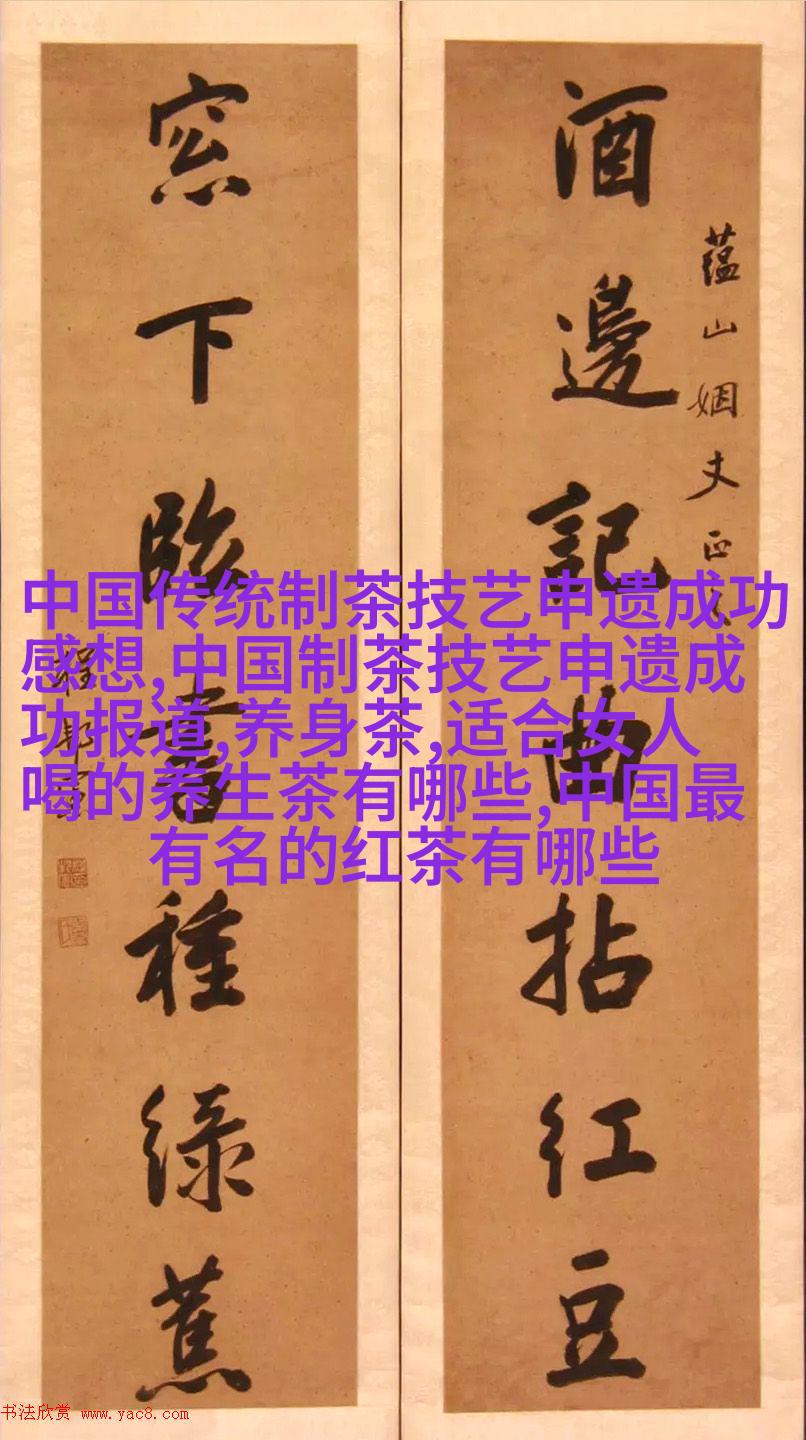 中国传统制茶技艺申遗成功
感想,中国制茶技艺申遗成
功报道,养身茶,适合女人
喝的养生茶有哪些,中国最
有名的红茶有哪些
蘊山姻丈正
酒邊記曲拈紅豆
窓下臨書種綠蕉
程
书法欣赏 www.yac8.com